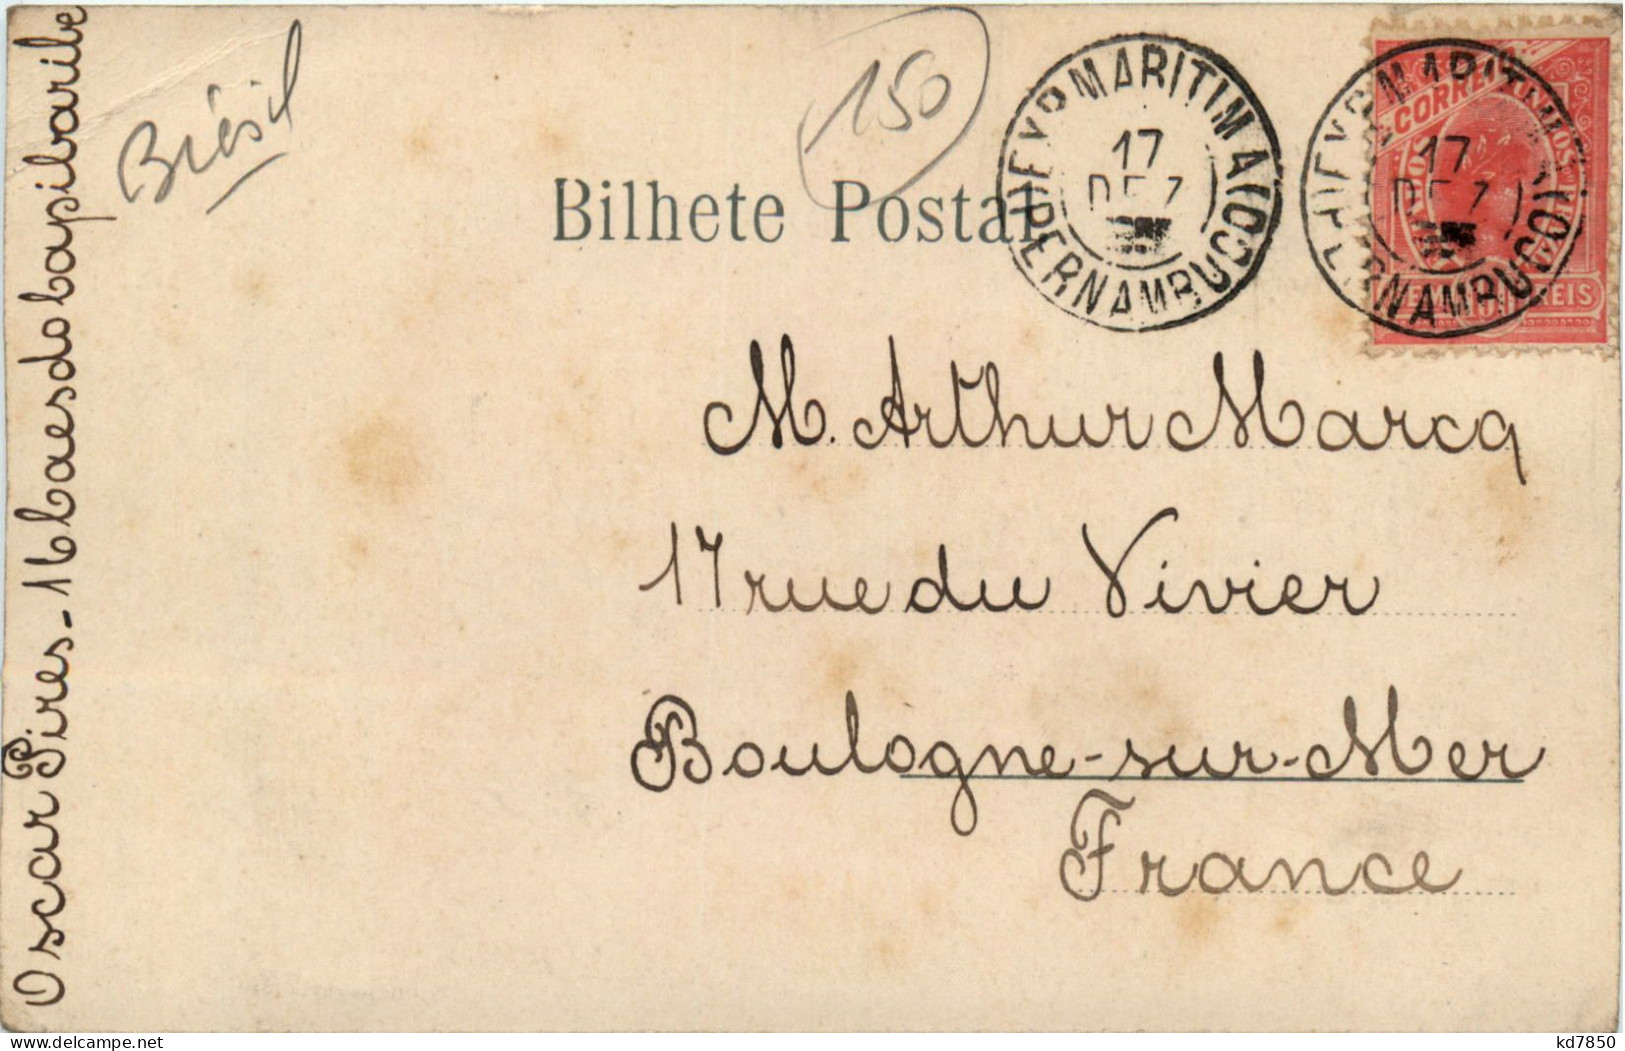 Oscar Pires - 16 Caes do Capibaribe
Brésil
150
Bilhete Postal
MARITIMA
17
DEZ
PERNAMBUCO
MARITIMA
17
DEZ
PERNAMBUCO
CORREIO
REIS
M. Arthur Marcq
17 rue du Vivier
Boulogne-sur-Mer
France
kd7850